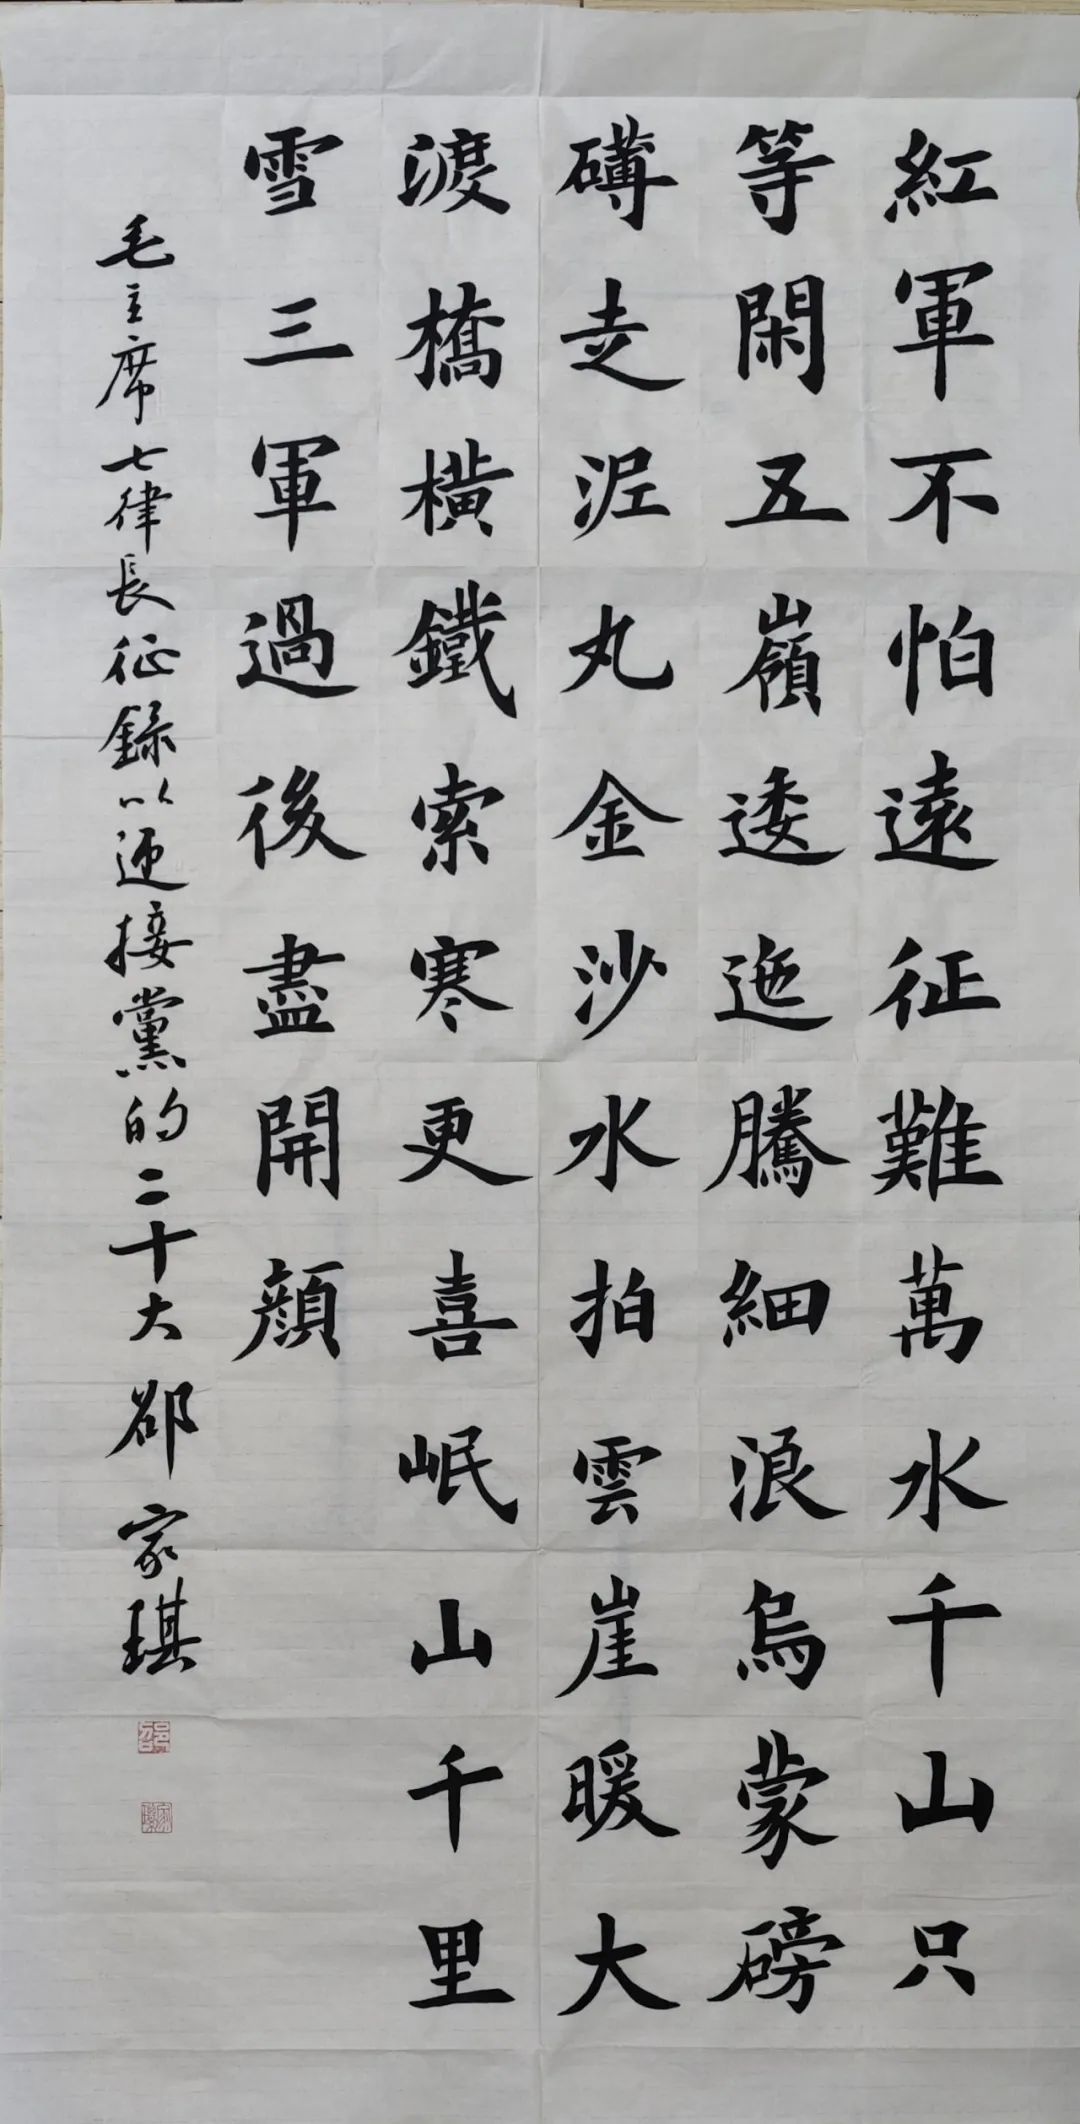 紅軍不怕遠征難萬水千山只
等閑五嶺逶迤騰細浪烏蒙磅
礡走泥丸金沙水拍雲崖暖大
渡橋橫鐵索寒更喜岷山千里
雪三軍過後盡開顏
毛主席七律長征録以迎接黨的二十大 郤家琪